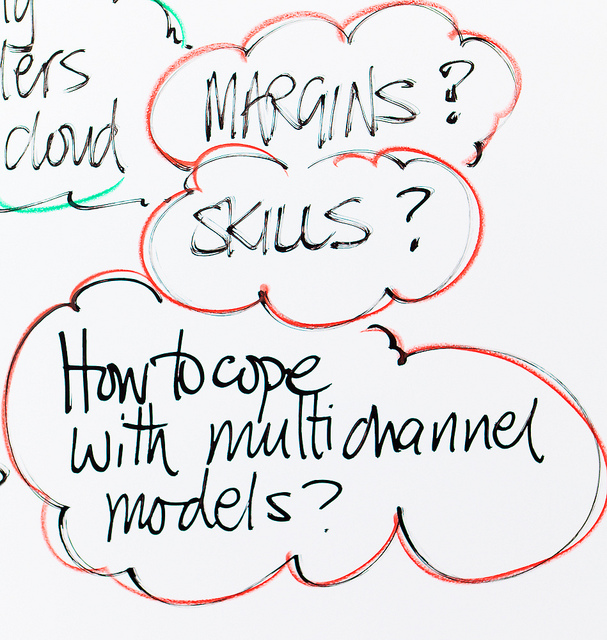 ters
cloud
MARGINS?
SKILLS?
How to cope
with multichannel
models?